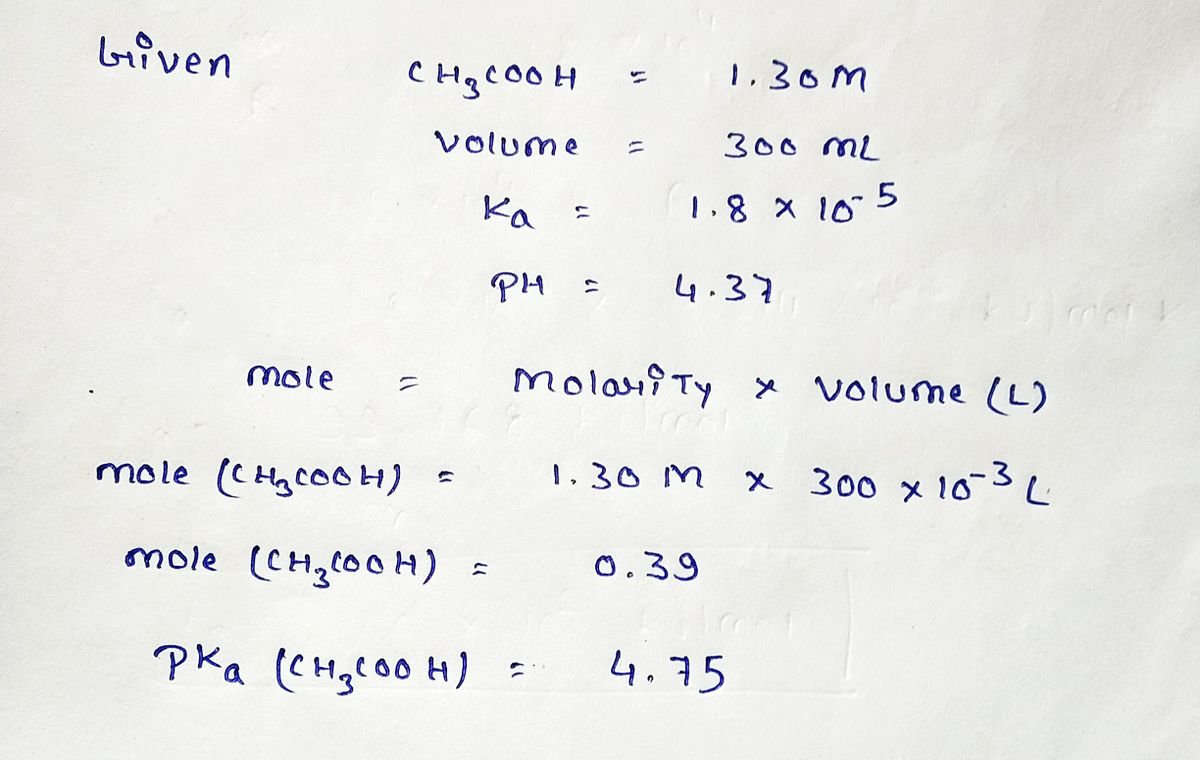 Given
CH3COOH = 1.30 M
Volume = 300 mL
Ka = 1.8 x 10-5
PH = 4.37
mole = Molarity x Volume (L)
mole (CH3COOH) = 1.30 M x 300 x 10-3 L
mole (CH3COOH) = 0.39
PKa (CH3COOH) = 4.75